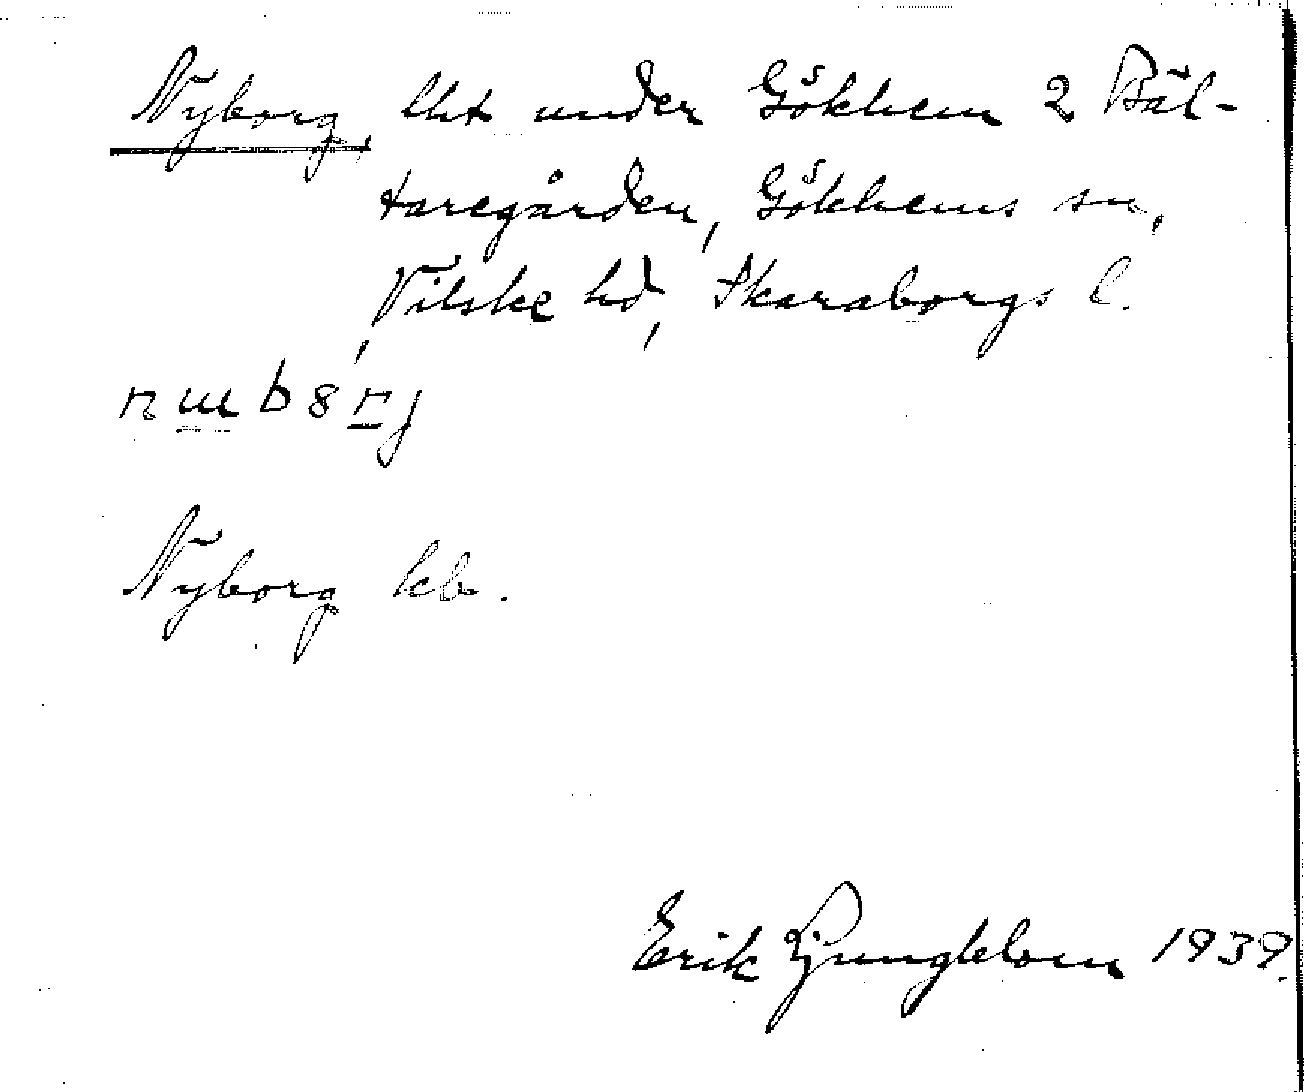 Nyborg, lht under Gökhem 2 Bäl-
taregården, Gökhems sn,
Vilske hd, Skaraborgs l.
Nyborg kb.
Erik Ljungblom 1939.